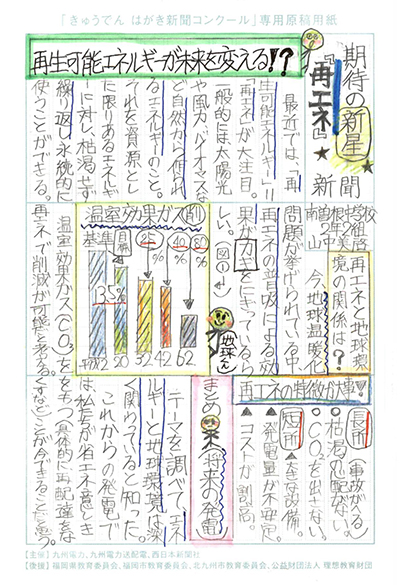 「きゅうでん はがき新聞コンクール」専用原稿用紙
再生可能エネルギーが未来を変える!?
期待の新星
★『再エネ』★
新聞
南曽根中学校
2年2組
最近では、「再
生可能エネルギー」
「再エネ」が大注目。
一般的には太陽光
や風力・バイオマスな
ど自然から得られ
るエネルギーのこと。
それを資源とし
た限りあるエネルギ
ーに対し、枯渇せず
繰り返し永続的に
使うことができる。
再エネと地球環
境の関係は?
今、地球温暖化
問題が挙げられている中
再エネの普及による効
果がカギをにぎっているら
しい。(図1)
地球くん
温室効果ガス削
基準
目標
25%
25%
40%
80%
平成2
20
32
42
62
温室効果ガス(CO₂)を
再エネで削減が可能と考える。
再エネの特徴が大事!
長所
●枯渇の心配がない。
●CO₂を出さない。
短所
▲発電量が不安定。
▲コストが割高。
まとめ(将来の発電)
テーマを調べて、エネル
ギーと地球環境は深
く関わってると知った。
これからの発電で
は、私たちが省エネ意しき
をもつ(具体的に再配達をな
くすなど)ことが今できることだと思う
【主催】九州電力、九州電力送配電、西日本新聞社
【後援】福岡県教育委員会、福岡市教育委員会、北九州市教育委員会、公益財団法人 理想教育財団